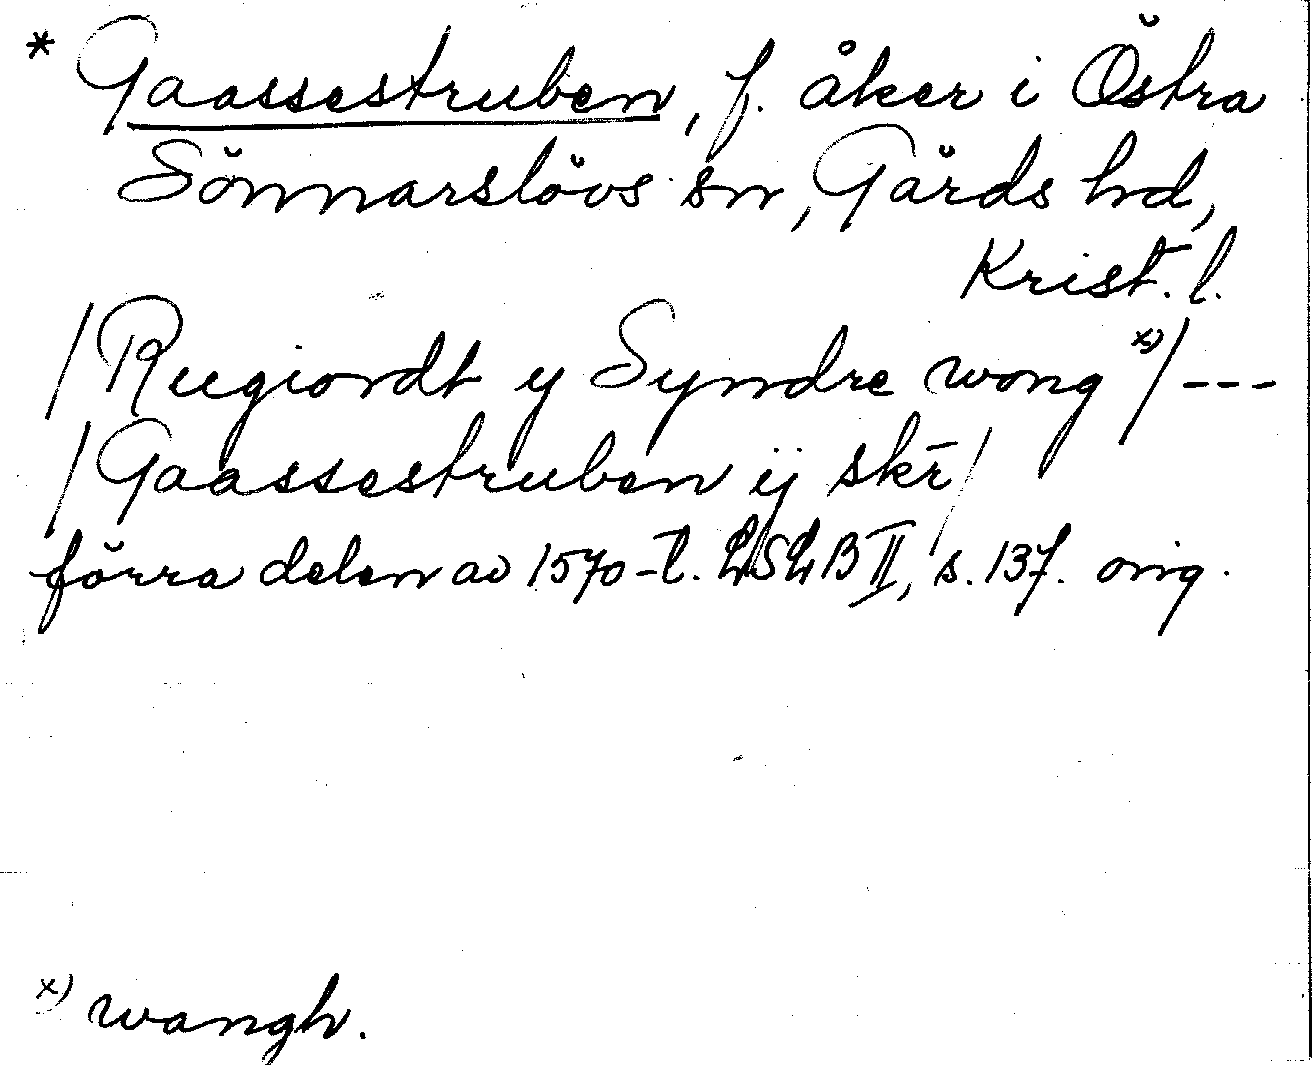 * Gaassestruben, f. åker i Östra
Sönnarslövs sn, Gärds hd,
Krist. l.
/Rugiordt y Syndre wong x)/---
/Gaassestruben ij skr̄/
förra delen av 1570-t. LSLB II, s. 137. orig.
x) wangh.